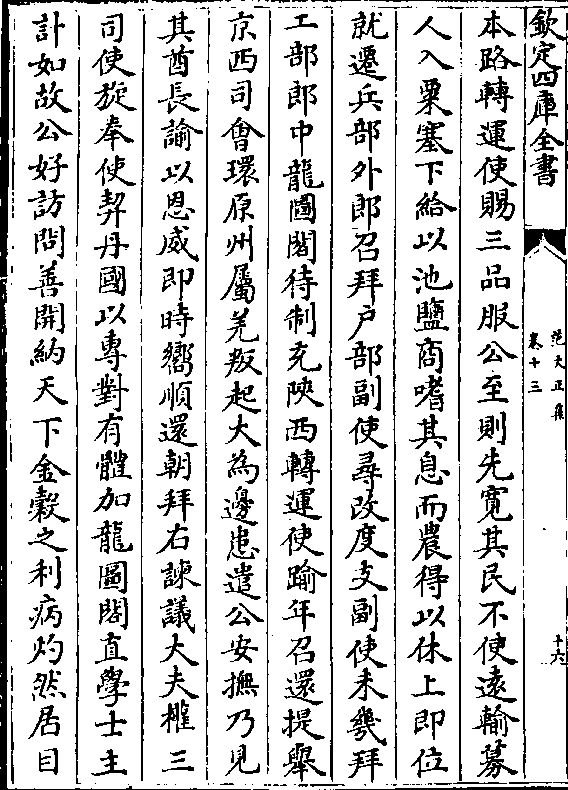 欽定四庫全書
范文正集
卷十三
十六
本路轉運使賜三品服公至則先寛其民不使逺輸募
人入粟塞下給以池鹽商嗜其息而農得以休上即位
就遷兵部外郎召拜户部副使尋改度支副使未幾拜
工部郎中龍圖閣待制充陜西轉運使踰年召還提舉
京西司會環原州屬羌叛起大為邊患遣公安撫乃見
其酋長諭以恩威即時嚮順還朝拜右諫議大夫權三
司使旋奉使契丹國以專對有體加龍圖閣直學士主
計如故公好訪問善開納天下金穀之利病灼然居目